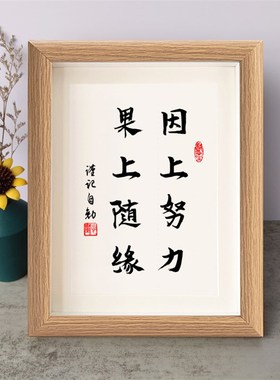 因上努力
果上随缘
谨记自勉